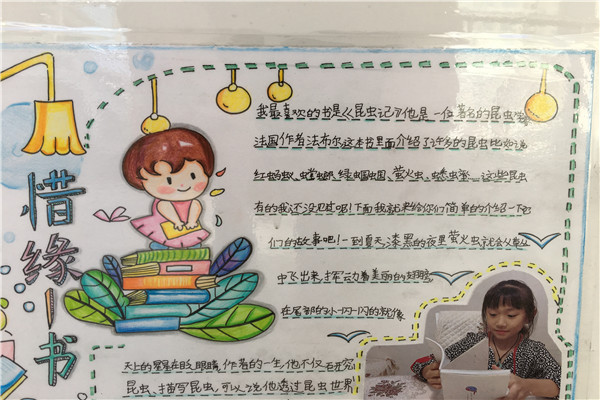 惜缘一书
我最喜欢的书是《昆虫记》他是一位著名的昆虫
法国作者法布尔这本书里面介绍了许多的昆虫比如说
红蚂蚁、蟑螂、绿蝈蝈、萤火虫、蟋蟀等……这些昆虫
有的我还没见过呢!下面我就来给你们简单的介绍一下它
们的故事吧!一到夏天漆黑的夜里萤火虫就会从草丛
中飞出来,扑动着美丽的翅膀
在尾部的小一闪一闪的就像
天上的星星在眨眼睛,作者的一生,他不仅研究
昆虫、描写昆虫,可以说他透过昆虫世界